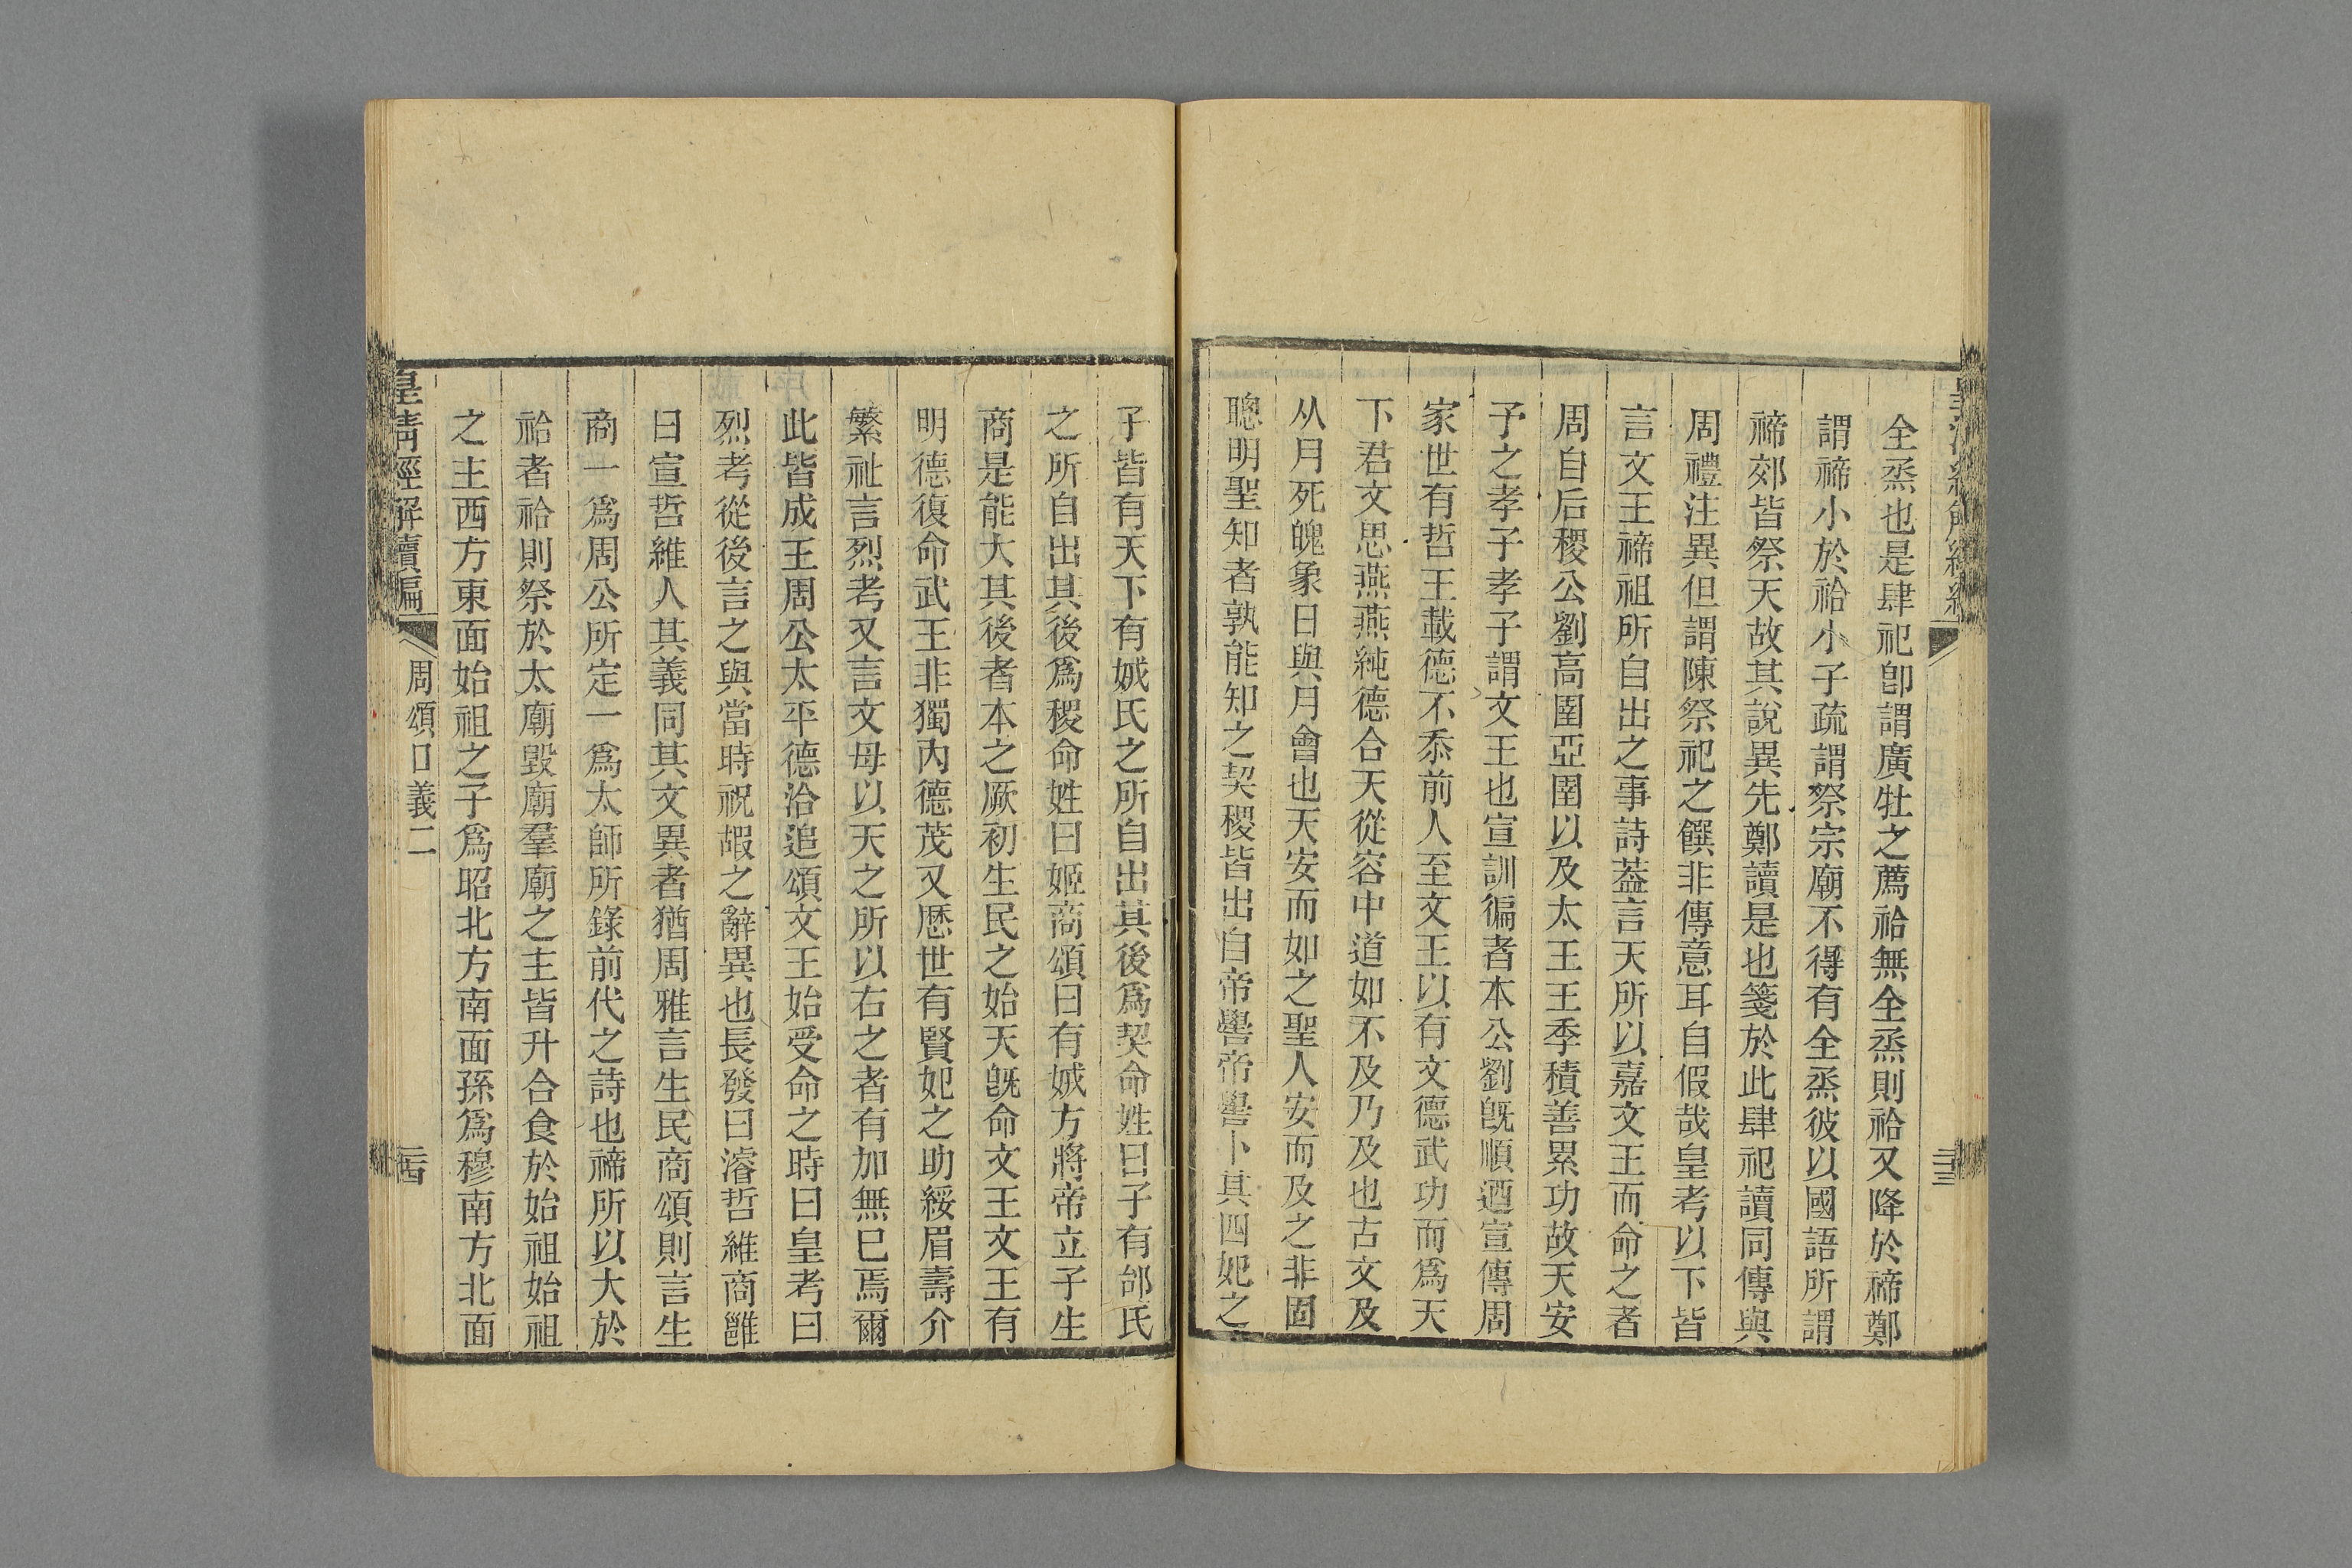 全烝也是肆祀卽謂廣牡之薦祫無全烝則祫又降於禘鄭
謂禘小於祫小子疏謂祭宗廟不得有全烝彼以國語所謂
禘郊皆祭天故其說異先鄭讀是也箋於此肆祀讀同傳與
周禮注異但謂陳祭祀之饌非傳意耳自假哉皇考以下皆
言文王禘祖所自出之事詩葢言天所以嘉文王而命之者
周自后稷公劉高圉亞圉以及太王王季積善累功故天安
予之孝子孝子謂文王也宣訓徧者本公劉旣順迺宣傳周
家世有哲王載德不忝前人至文王以有文德武功而爲天
下君文思燕燕純德合天從容中道如不及乃及也古文及
从月死魄象日與月會也天安而如之聖人安而及之非固
聰明聖知者孰能知之契稷皆出自帝嚳帝嚳卜其四妃之
子皆有天下有娀氏之所自出其後爲契命姓曰子有邰氏
之所自出其後爲稷命姓曰姬商頌曰有娀方將帝立子生
商是能大其後者本之厥初生民之始天旣命文王文王有
明德復命武王非獨內德茂又厯世有賢妃之助綏眉壽介
繁祉言烈考又言文母以天之所以右之者有加無已焉爾
此皆成王周公太平德洽追頌文王始受命之時曰皇考曰
烈考從後言之與當時祝嘏之辭異也長發曰濬哲維商雝
曰宣哲維人其義同其文異者猶周雅言生民商頌則言生
商一爲周公所定一爲太師所錄前代之詩也禘所以大於
祫者祫則祭於太廟毀廟羣廟之主皆升合食於始祖始祖
之主西方東面始祖之子爲昭北方南面孫爲穆南方北面
皇清經解續編
周頌口義二